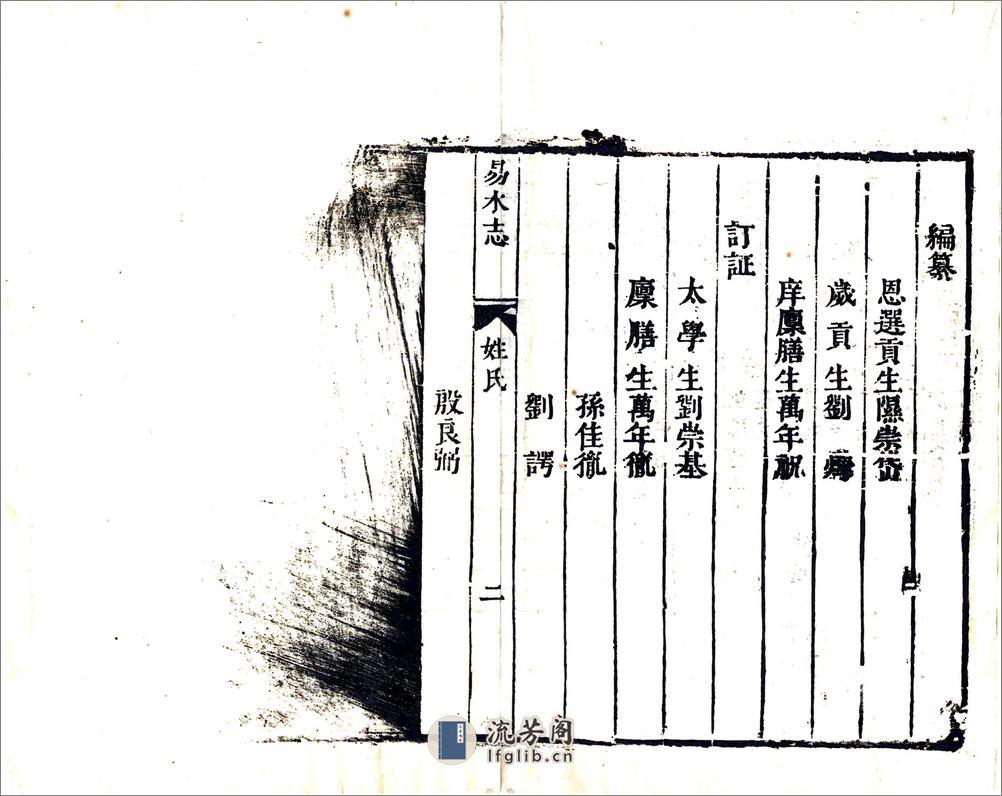 編纂
恩選貢生隰崇岱
歲貢生劉
庠廩膳生萬年祝
訂証
太學生劉崇基
廩膳生萬年胤
孫佳胤
劉諤
易水志
姓氏
二
殷良弼
流芳阁
lfglib.cn